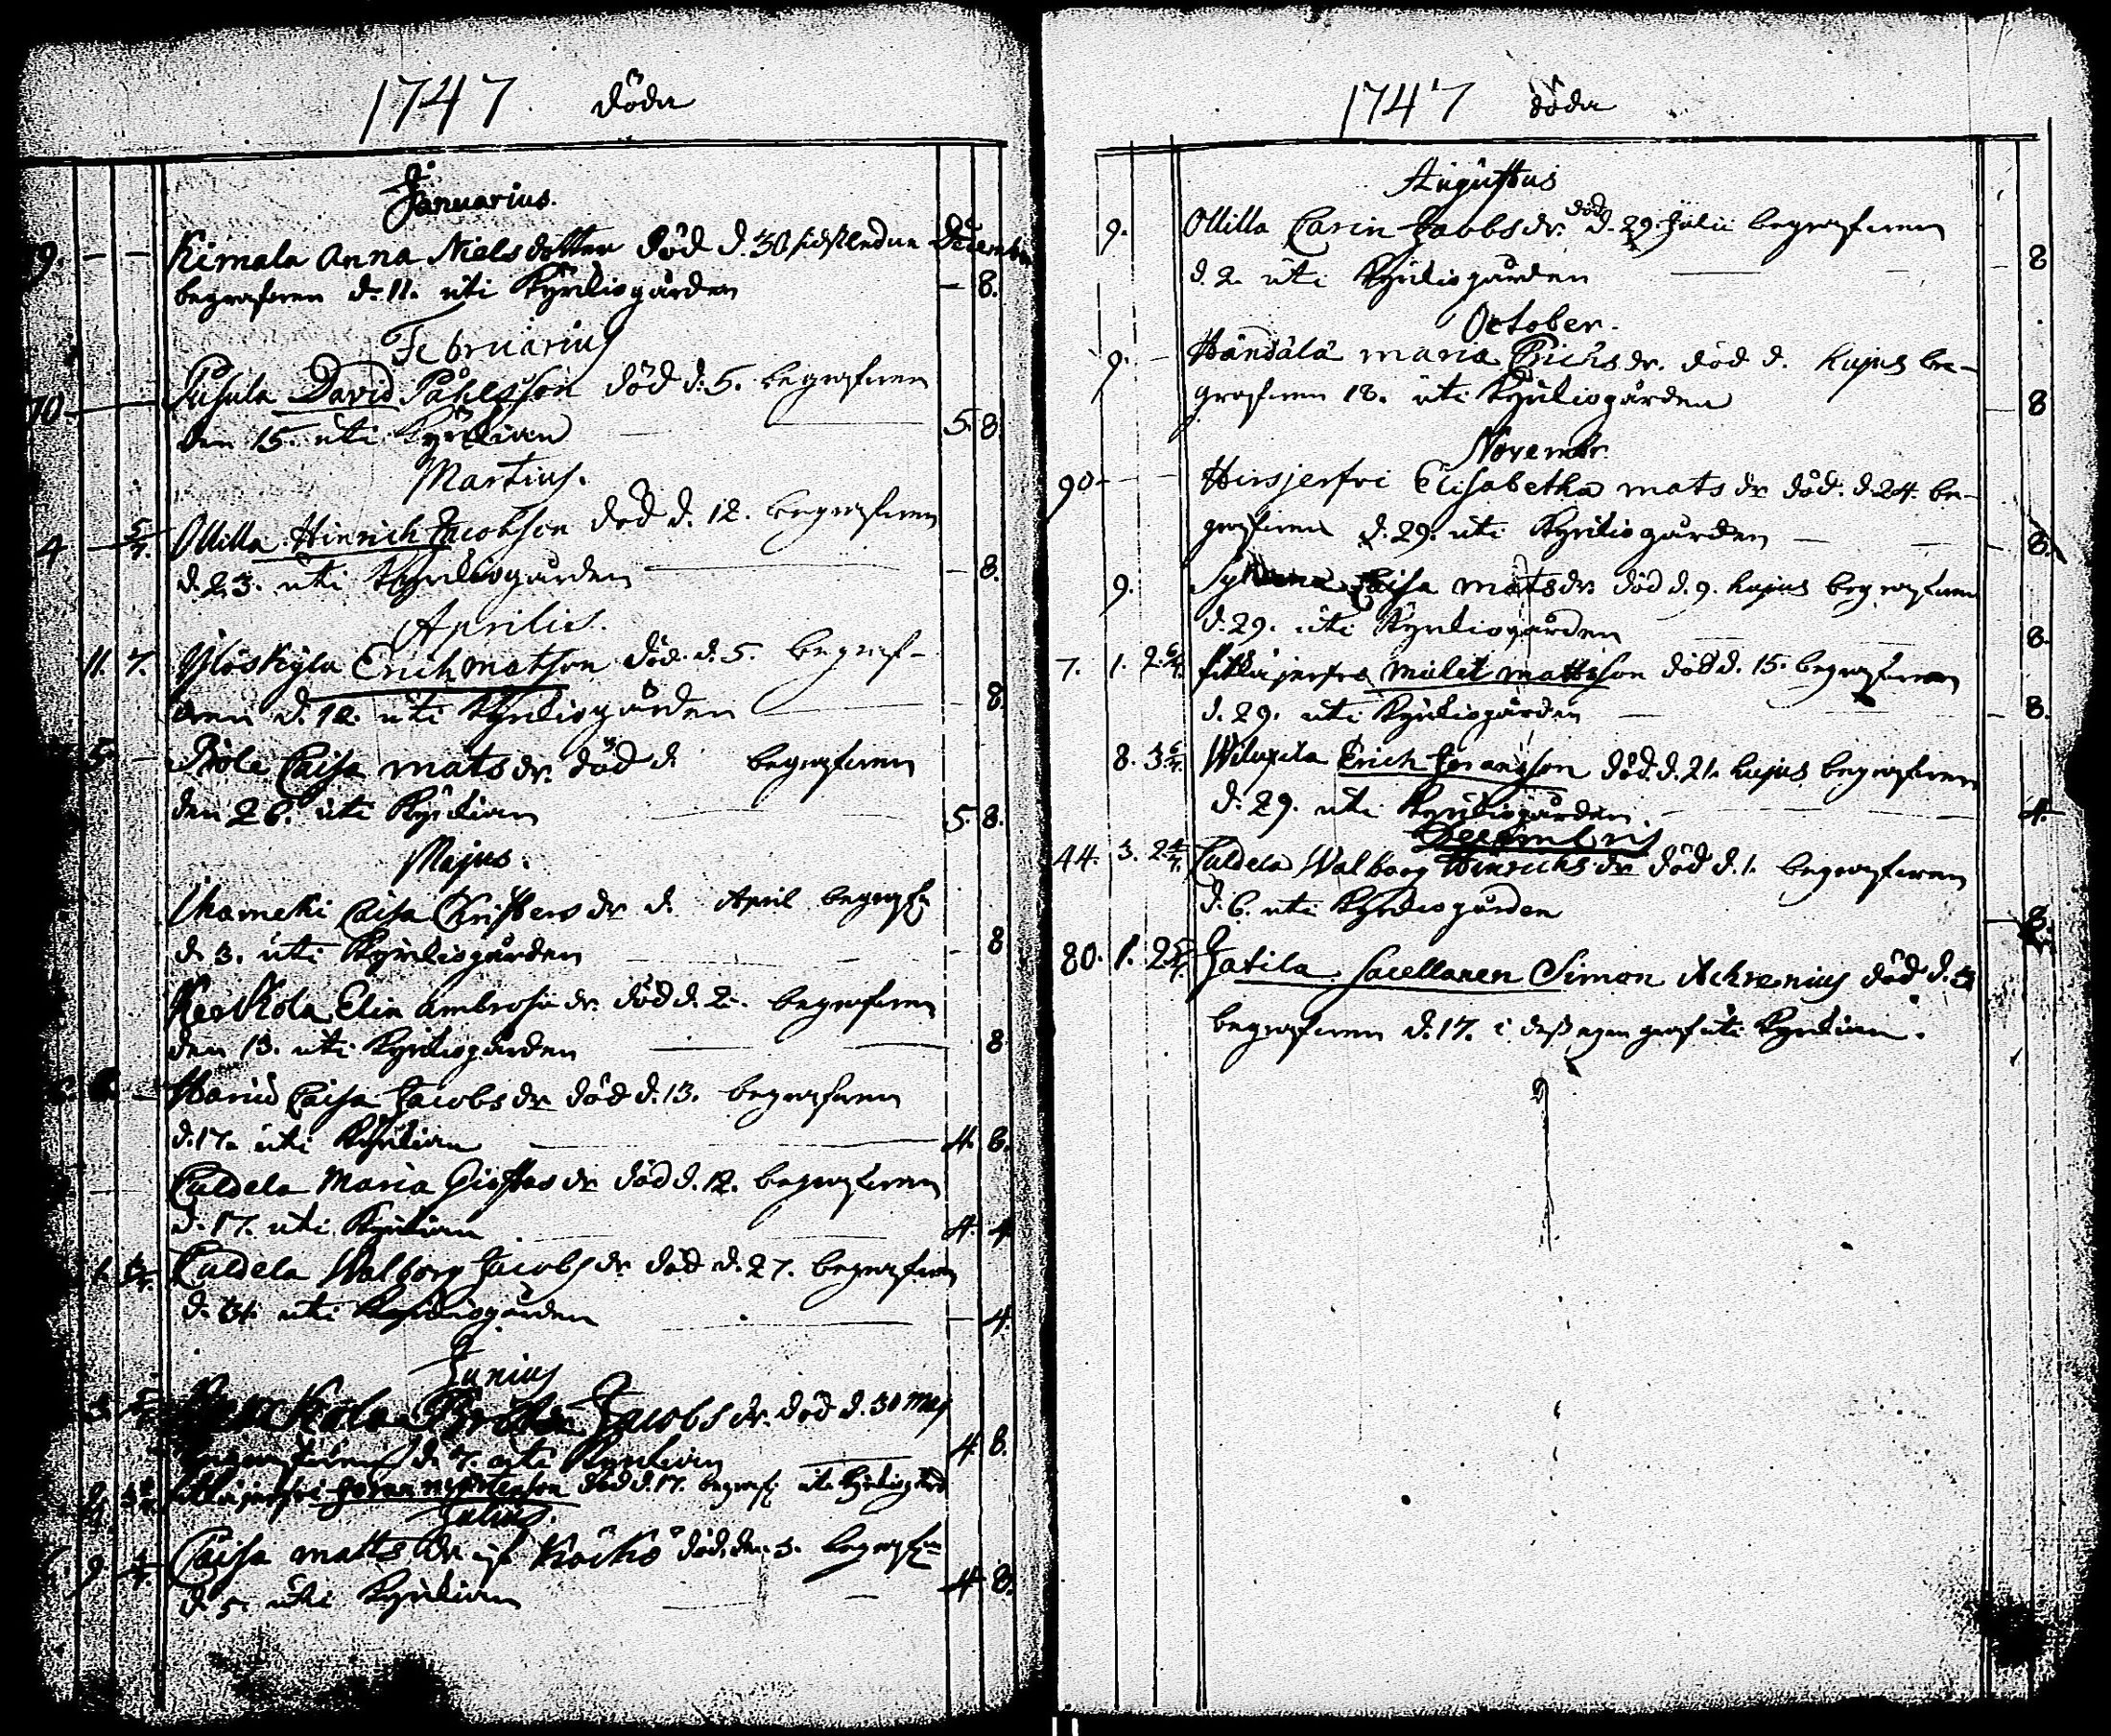 1747 döda
Januarius.
9. Kimala Anna Nielsdotter död d. 30 sidstledne December
begrafwen d. 11. uti Kyrkiogården — 8.
Februarius
70. Pusula David Påhlsson död d. 5. begrafwen
den 15. uti Kyrkian 5. 8.
Martius.
4 5/7 Ollilla Hinrich Jacobson död d. 12. begrafwen
d. 23. uti Kyrkiogården — 8.
Aprilis.
11. 7. Yloskyla Erich Matson död d. 5. begraf-
wen d. 12. uti Kyrkiogården 8.
5. Caisa Matsdr. död d. begrafwen
den 26. uti Kyrkian 5. 8.
Majus.
Caisa Christersdr d. April begrafn
d. 3. uti Kyrkiogården — 8
Keskola Elin Ambrosiadr. död d. 2. begrafwen
den 13. uti Kyrkiogården 8
Caisa Jacobsdr död d. 13. begrafwen
d. 17. uti Kyrkian 4. 6.
Culdela Maria Giöstasdr död d. 12. begrafwen
d. 17. uti Kyrkian 4. 4
1. Culdela Walborg Jacobsdr död d. 27. begrafwen
d. 31. uti Kyrkiogården — 4.
Junius
3 Jacobsdr. död d. 30 Maj
begrafwen d. 7. uti Kyrkian 4. 8.
Göran Mårtenson död d. 17. begrafn uti Kyrkiogård
Julius.
9 Caisa Mattsdr Köikö död den 3. begrafn
d. 5. uti Kyrkian 4 8.
1747 döda
Augustus
9. Ollilla Carin Jacobsdr. död d. 29. Julii begrafwen
d. 2. uti Kyrkiogården — 8
October.
9. Händälä Maria Erichsdr. död d. hujus be-
grafwen 18. uti Kyrkiogården — 8
Novembr.
90 Hirsjerfvi Elisabetha Matsdr död d. 24. be-
grafwen d. 29. uti Kyrkiogården — 8.
9. Caisa Matsdr. död d. 9. hujus begrafwen
d. 29. uti Kyrkiogården 8.
7. 1. 2 6/7. Pitkäjerfvi Michel Mattsson död d. 15. begrafwen
d. 29. uti Kyrkiogården — 8.
8. 3 Erich Göransson död d. 21. hujus begrafwen
d. 29. uti Kyrkiogården. 4.
December
44. 3. 2 Culdela Walborg Hinrichsdr död d. 1. begrafwen
d. 6. uti Kyrkiogården — 8.
80. 1. 2 Jatila Sacellanen Simon Achrenius död d. 3
begrafwen d. 17. i dess egen graf uti Kyrkian.